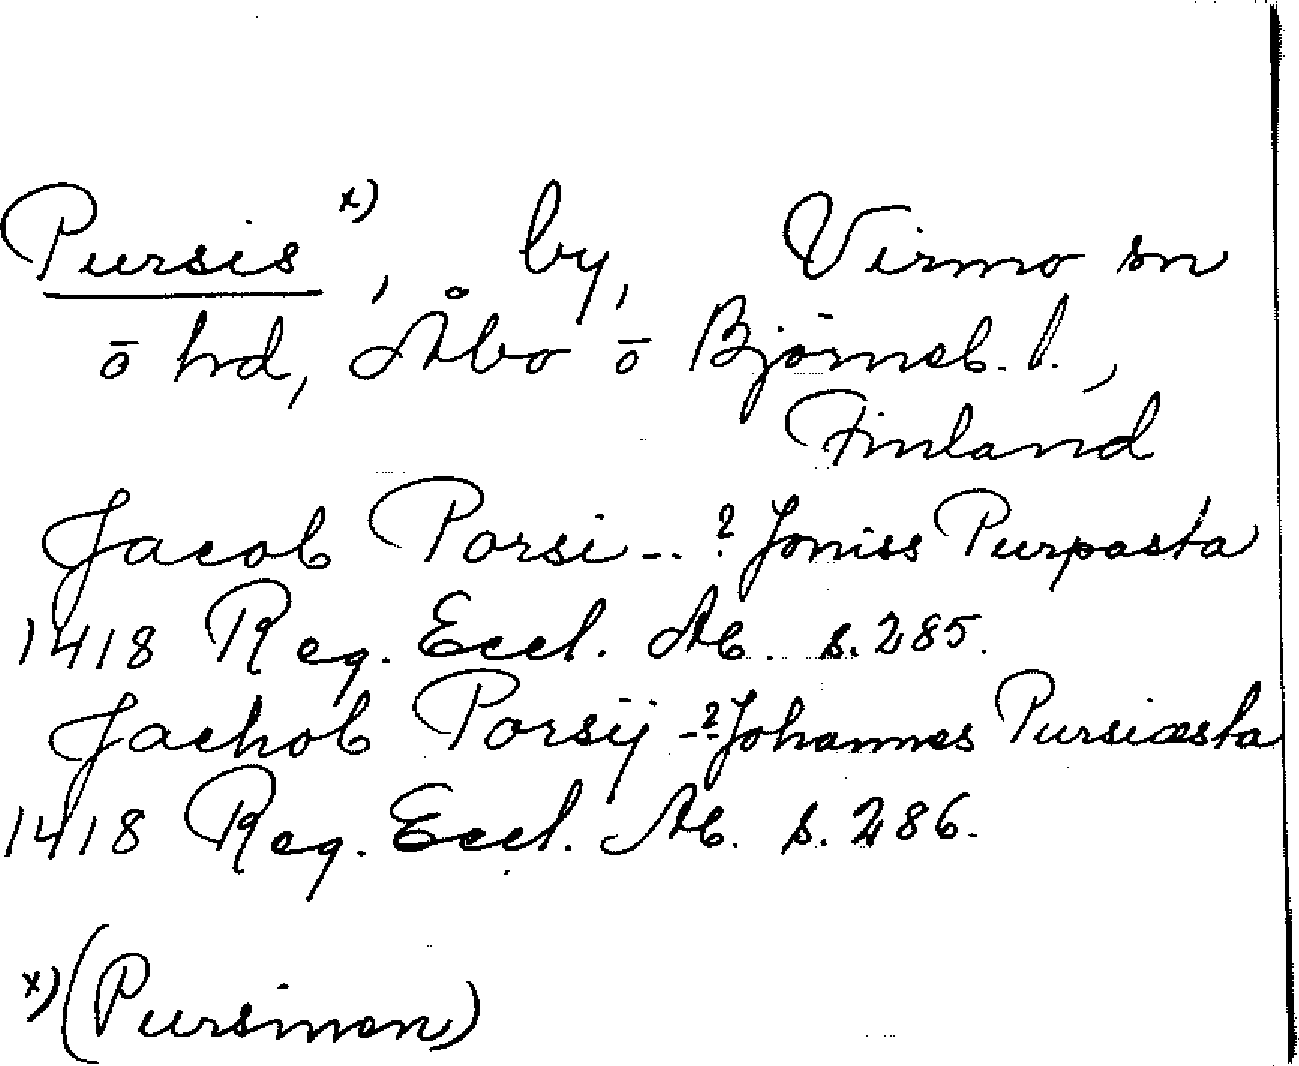 Pursis x), by, Virmo sn
o hd, Åbo o Björneb. l.,
Finland
Jacob Porsi -..? Joniss Purpasta
1418 Reg. Eccl. Ab. s. 285.
Jachob Porsij -..? Johannes Pursiæsta
1418 Reg. Eccl. Ab. s. 286.
x) (Pursinen)